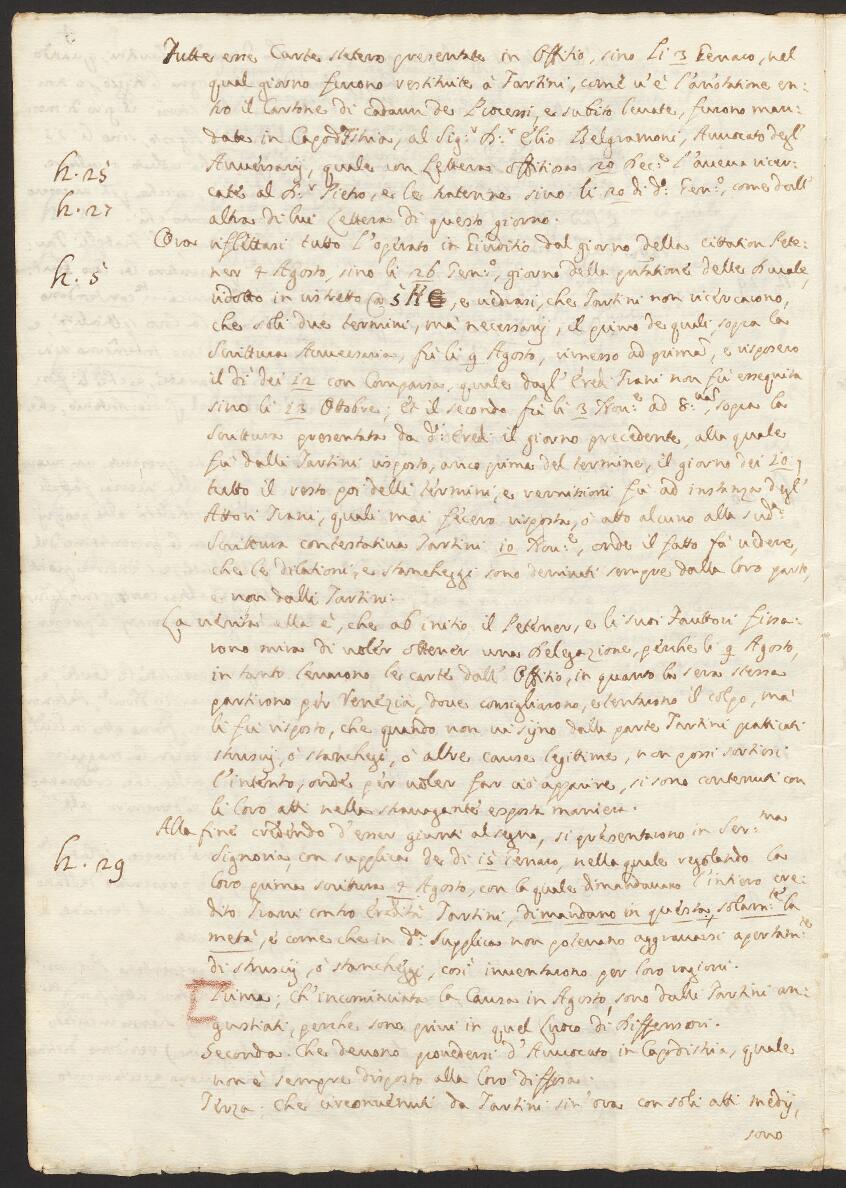 Tutte esse Carte stetero presentate in Offitio, sino li 3 Genaro, nel
qual giorno furono restituite à Tartini, come v'è l'anotatione en-
tro il Cartone di cadaun de Processi, e subito levate, furono man-
date in Capod'Istria, al Sig:r D:r Elio Belgramoni, Avvocato degl'
h. 25
Aversarij, quale con Lettera offitiosa 20 Dec:e l'aveva ricer-
cate al D:r Pietro, e le tratenne sino li 20 di d:o Gen:o, come dall'
h. 27
altra di lui Lettera di questo giorno.
Ora riflettasi tutto l'operato in Giuditio dal giorno della cittation Pete-
h. 5
ner 4 Agosto, sino li 26 Gen:o, giorno della
ridotto in ristretto 5 e vedrasi, che Tartini non ricercarono,
che soli due termini, mà necessarij, il primo de quali, sopra la
Scrittura Aversaria, fù li 9 Agosto, rimesso ad primã, e risposero
il di dei 12 con Comparsa, quale dagl'Eredi Trani non fù esseguita
sino li 13 Ottobre; Et il secondo fù li 3 Nov:e ad 8:vam, sopra la
Scrittura presentata da d:i Eredi il giorno precedente, alla quale
fù dalli Tartini risposto, anco prima del termine, il giorno dei 10,
tutto il resto poi delli termini, e remissioni fù ad instanza degl'
Attori Trani, quali mai fecero risposta, ò atto alcuno alla sud:a
Scrittura contestativa Tartini 10 Nov:e, onde il fatto fà vedere,
che le dilationi, e stancheggi sono derivati sempre dalla loro parte,
e non dalli Tartini.
La verità ella è, che ab initio il Petener, e li suoi Fauttori fissa-
rono mira di voler ottener una Delegazione, perche li 9 Agosto,
in tanto levarono le carte dall'Offitio, in quanto la sera stessa
partirono per Venezia, dove consigliarono, e tentarono il colpo, mà
li fù risposto, che quando non vi sijno dalla parte Tartini pratticati
strussij, ò stanchezi, ò altre cause legitime, non possi sortirsi
l'intento, onde per voler far ciò apparire, si sono contenuti con
li loro atti nella stravagante esposta maniera.
Alla fine credendo d'esser giunti al segno, si presentarono in Ser:ma
h. 29
Signoria, con supplica de di 15 Genaro, nella quale regolando la
loro prima scritura 4 Agosto, con la quale dimandavano l'intiero cre-
dito Trani contro Eredità Tartini, dimandano in questa, solam:te la
metà, e come che in d:a Supplica non potevano aggravarsi apertam:te
di strussij, ò stancheggi, così inventarono per loro ragioni.
Prima; Ch'incominciata la Causa in Agosto, sono dalli Tartini an-
gustiati, perche sono privi in quel Luoco di Diffensori.
Seconda. Che devono provedersi d'Avvocato in Capodistria, quale
non è sempre disposto alla loro diffesa.
Terza; Che circonvenuti da Tartini sin'ora con soli atti medij,
sono